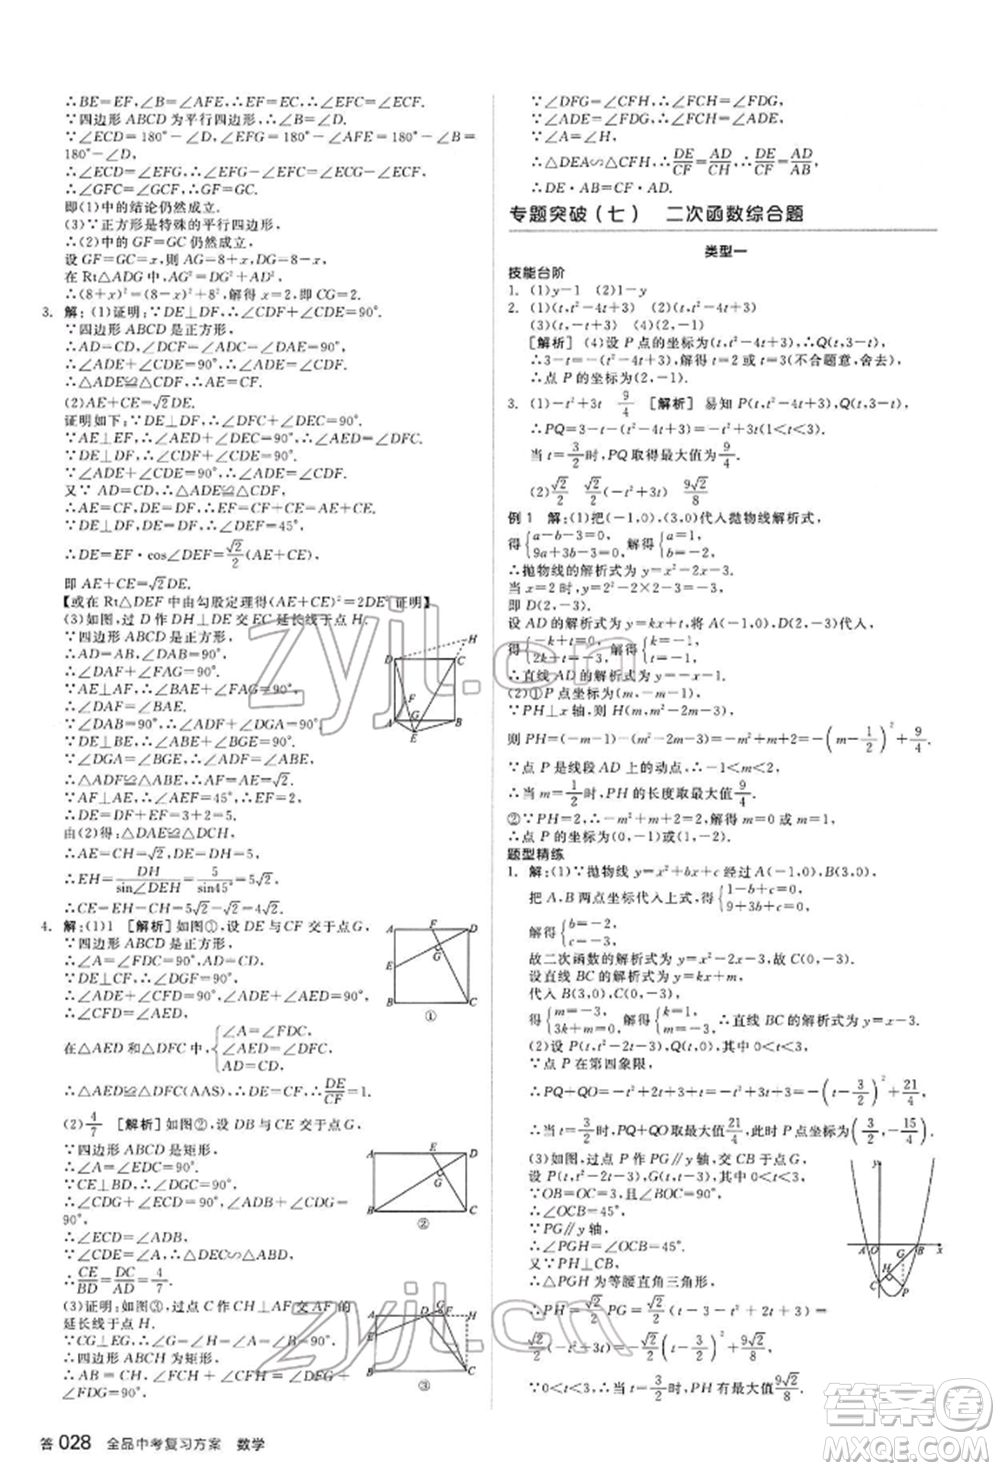 ∴BE=EF,∠B=∠AFE,∴EF=EC,∴∠EFC=∠ECF.
∵四边形 ABCD 为平行四边形,∴∠B=∠D.
∵∠ECD=180°-∠D,∠EFG=180°-∠AFE=180°-∠B=180°-∠D,
∴∠ECD=∠EFG,∴∠GFC=∠EFG-∠EFC=∠ECD-∠ECF=∠GCF,
∴GF=GC,
即(1)中的结论仍然成立.
(3)∵正方形是特殊的平行四边形,
∴(2)中的 GF=GC仍然成立.
设 GF=GC=x,则 AG=8+x,DG=8-x,
在 Rt△ADG 中,AG²=DG²+AD²,
∴(8+x)²=(8-x)²+8²,解得 x=2,∴DG=6.
3. 解:(1)证明:∵DE⊥DF,∴∠CDF+∠CDE=90°.
∵四边形 ABCD 是正方形,
∴AD=CD,∠ADC=90°,
∴∠ADE+∠CDE=90°,∴∠ADE=∠CDF,
∴△ADE≌△CDF,∴AE=CF.
(2)AE+CE=√2DE.
证明如下:∵DE⊥DF,∴∠DFC+∠DEC=90°.
∵AE⊥EF,∴∠AED+∠DEC=90°,∴∠AED=∠DFC.
∵DE⊥DF,∴∠CDF+∠CDE=90°.
∵∠ADE+∠CDE=90°,∴∠ADE=∠CDF.
又∵AD=CD,∴△ADE≌△CDF,
∴DE=DF,AE=CF,∴AE+CE=EF.
∵DE⊥DF,DE=DF,∴∠DEF=45°,
∴DE=EF·cos∠DEF=√2/2(AE+CE),
即 AE+CE=√2DE.
【或在 Rt△DEF 中由勾股定理得(AE+CE)²=2DE²证明】
(3)如图,过 D 作 DH⊥DE 交 EC 延长线于点 H.
∵四边形 ABCD 是正方形,
∴AD=AB,∠DAB=90°,
∴∠DAF+∠FAG=90°.
∵AE⊥AF,∴∠BAE+∠FAG=90°,
∴∠DAF=∠BAE.
∵∠DAB=90°,∴∠ADF+∠DGA=90°.
∵∠DGA=∠BGE,∠BGE+∠ABE=90°,
∴△ADF≌△ABE,∴DF=BE,AF=AE=√2.
∵AF⊥AE,∴∠AEF=45°,∴EF=2,
∴DE=DF+EF=3+2=5.
由(2)得:△DAE≌△DCH,
∴AE=CH=√2,DE=DH=5,
∴EH=DH/sin∠DEH=5/sin45°=5√2,
∴CE=EH-CH=5√2-√2=4√2.
4. 解:(1)1 [解析]如图①,设 DE 与 CF 交于点G,
∵四边形 ABCD 是正方形,
∴∠A=∠FDC=90°,AD=CD.
∵DE⊥CF,∴∠DGF=90°,
∴∠ADE+∠CFD=90°,
∠ADE+∠AED=90°,∴∠CFD=∠AED,
在△AED 和△DFC 中,{∠A=∠FDC, ∠AED=∠CFD, AD=CD,
∴△AED≌△DFC(AAS),∴DE=CF,∴DE/CF=1.
(2)4/7 [解析]如图②,设 DB 与 CE 交于点G,
∵四边形 ABCD 是矩形,
∴∠A=∠EDC=90°.
∵CE⊥BD,∴∠DGC=90°,
∴∠CDG+∠ECD=90°,∠ADB+∠CDG=90°,
∴∠ECD=∠ADB.
∵∠CDE=∠A,∴△DEC∽△ABD,
∴CE/BD=DC/AD=4/7.
(3)证明:如图③,过点 C 作 CH⊥AF 交 AF 的延长线于点 H.
∵CG⊥EG,∴∠G=∠H=∠A=∠B=90°,
∴四边形 ABCH 为矩形,
∴AB=CH,∠FCH+∠CFH=∠DFG+∠FDG=90°.
∵∠DFG=∠CFH,∴∠FCH=∠FDG,
∵∠ADE=∠FDG,∴∠FCH=∠ADE.
∵∠A=∠H=90°,
∴△DEA∽△CFH,∴DE/CF=AD/CH,∴DE/CF=AD/AB,
∴DE·AB=CF·AD.
专题突破(七) 二次函数综合题
类型一
技能台阶
1. (1)y-1 (2)1-y
2. (1)(t,t²-4t+3) (2)(t,t²-4t+3)
(3)(t,-t+3) (4)(2,-1)
[解析] (4)设 P 点的坐标为(t,t²-4t+3),∴Q(t,-t+3),
∴3-t=-(t²-4t+3),解得 t=2或 t=3(不合题意,舍去),
∴点 P 的坐标为(2,-1).
3. (1)-t²+3t 9/4 [解析] 易知 P(t,t²-4t+3),Q(t,-t+3),
∴PQ=3-t-(t²-4t+3)=-t²+3t(0<t<3).
当 t=3/2时,PQ 取得最大值9/4.
(2)√2/2 √2/2(-t²+3t) 9√2/8
例 1 解:(1)把(-1,0),(3,0)代入抛物线解析式,
得{a-b-3=0, 9a+3b-3=0, 解得{a=1, b=-2,
∴抛物线的解析式为 y=x²-2x-3.
当 x=2 时,y=2²-2×2-3=-3,
即 D(2,-3).
设 AD 的解析式为 y=kx+t,将 A(-1,0),D(2,-3)代入,
得{-k+t=0, 2k+t=-3, 解得{k=-1, t=-1,
∴直线 AD 的解析式为 y=-x-1.
(2)①P 点坐标为(m,-m-1).
∵PH⊥x 轴,则 H(m,m²-2m-3),
则 PH=(-m-1)-(m²-2m-3)=-m²+m+2=-(m-1/2)²+9/4.
∵点 P 是线段 AD 上的动点,∴-1<m<2,
∴当 m=1/2时,PH 的长度取最大值9/4.
②∵PH=2,∴-m²+m+2=2,解得 m=0 或 m=1,
∴点 P 的坐标为(0,-1)或(1,-2).
题型精练
1. 解:(1)∵抛物线 y=x²+bx+c 经过 A(-1,0),B(3,0),
把 A,B 两点坐标代入上式,得{1-b+c=0, 9+3b+c=0,
解得{b=-2, c=-3,
故二次函数的解析式为 y=x²-2x-3,∴C(0,-3).
设直线 BC 的解析式为 y=kx+m,
代入 B(3,0),C(0,-3),
得{m=-3, 3k+m=0, 解得{k=1, m=-3, ∴直线 BC 的解析式为 y=x-3.
(2)设 P(t,t²-2t-3),Q(t,0),其中 0<t<3.
∵点 P 在第四象限,
∴PQ+QO=-t²+2t+3+t=-t²+3t+3=-(t-3/2)²+21/4,
∴当 t=3/2时,PQ+QO最大值21/4,此时 P 点坐标为(3/2,-15/4).
(3)如图,过点 P 作 PG∥y 轴,交 BC 于点 G,
设 P(t,t²-2t-3),G(t,t-3),其中 0<t<3,
∵OB=OC=3,且∠BOC=90°,
∴∠OCB=45°.
∵PG∥y 轴,
∴∠PGH=∠OCB=45°.
又∵PH⊥BC,
∴△PGH 为等腰直角三角形,
∴PH=√2/2PG=√2/2(t-3-t²+2t+3)=√2/2(-t²+3t)=-√2/2(t-3/2)²+9√2/8.
∵0<t<3,∴当 t=3/2时,PH 有最大值9√2/8.
答 028 全品中考复习方案 数学